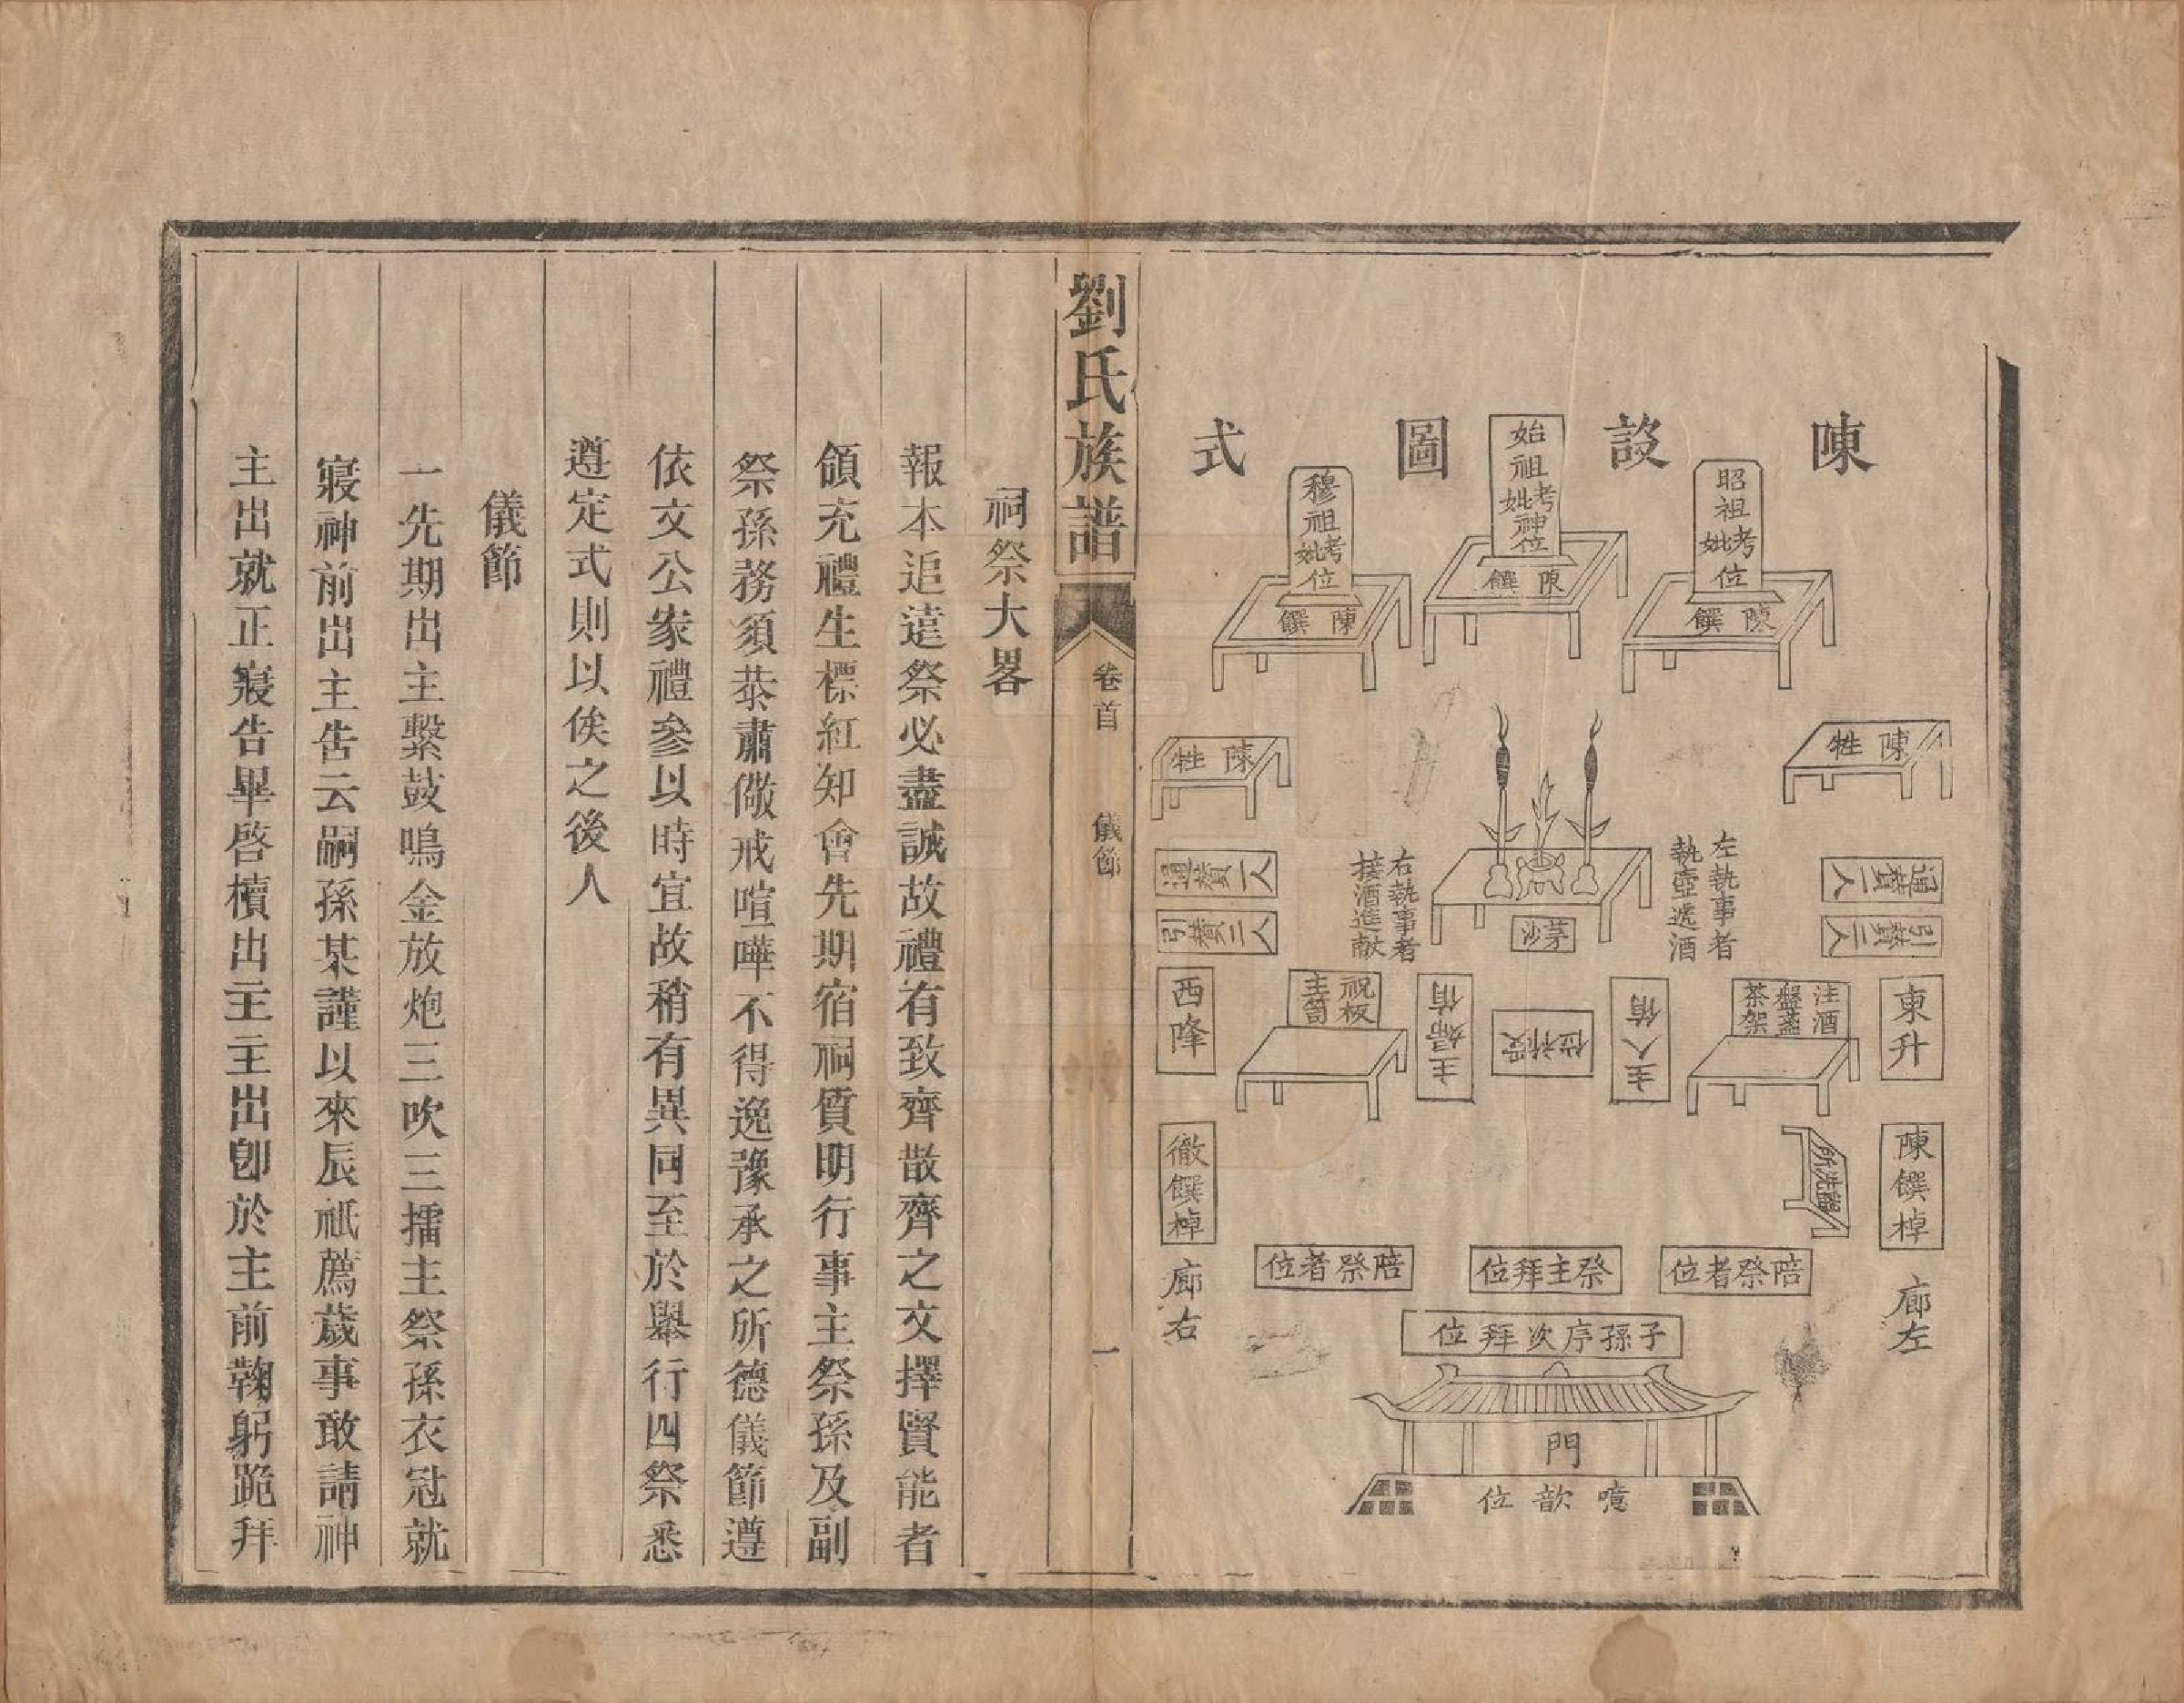 陳設圖式
始祖考妣神位
陳饌
昭祖考妣位
陳饌
穆祖考妣位
陳饌
陳牲
陳牲
左執事者
執壺遞酒
右執事者
接酒進獻
茅沙
通贊一人
引贊二人
通贊一人
引贊二人
東升
西降
注酒
盤盞
茶架
祝板
主笥
主人俯
受祚位
主婦俯
盥洗所
陳饌棹
徹饌棹
廊左
廊右
陪祭者位
祭主拜位
陪祭者位
子孫序次拜位
門
噫歆位
劉氏族譜
卷首
儀節
一
祠祭大畧
報本追遠祭必盡誠故禮有致齊散齊之文擇賢能者
領充禮生標紅知會先期宿祠質明行事主祭孫及副
祭孫務須恭肅儆戒喧嘩不得逸豫承之所德儀節遵
依文公家禮參以時宜故稍有異同至於舉行四祭悉
遵定式則以俟之後人
儀節
一先期出主繫鼓鳴金放炮三吹三擂主祭孫衣冠就
寢神前出主告云嗣孫某謹以來辰祗薦歲事敢請神
主出就正寢告畢啓櫝出主主出卽於主前鞠躬跪拜